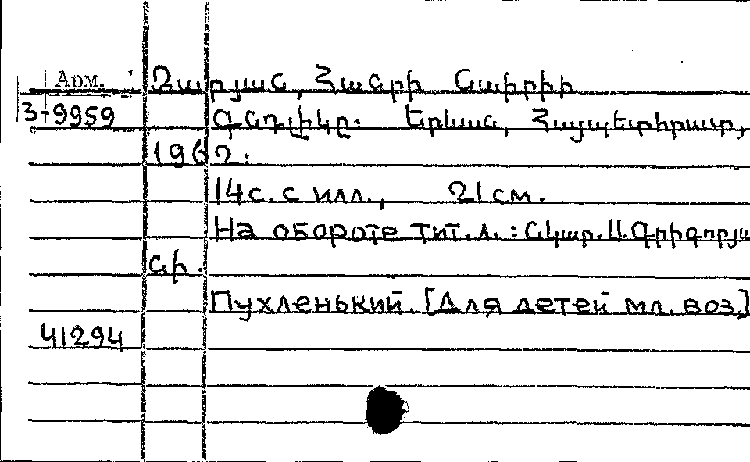 Арм. Զարյան, Հանրի Նաիրիի
З-9959 Գնդլիկը. Երևան, Հայպետհրատ,
1962.
14 с. с илл., 21 см.
На обороте тит. л. : Նկար. Ա. Գրիգորյա
նի.
Пухленький. [Для детей мл. воз.]
41294